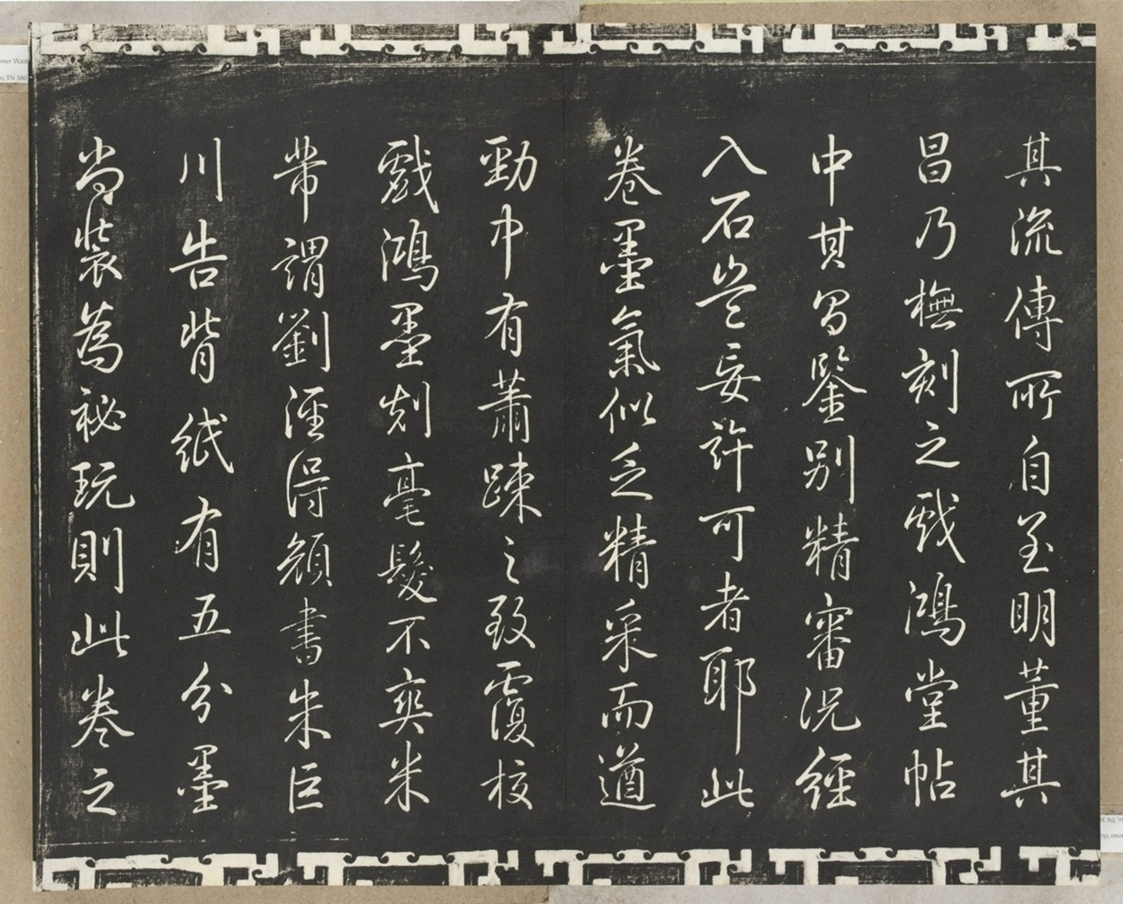 其流傳所自至明董其
昌乃橅刻之戲鴻堂帖
中其昌鑒別精審況經
入石豈妄許可者耶此
卷墨氣似乏精采而遒
勁中有蕭疎之致覆校
戲鴻墨刻毫髮不爽米
芾謂劉涇得顏書朱巨
川告背紙有五分墨
尚裝為祕玩則此卷之